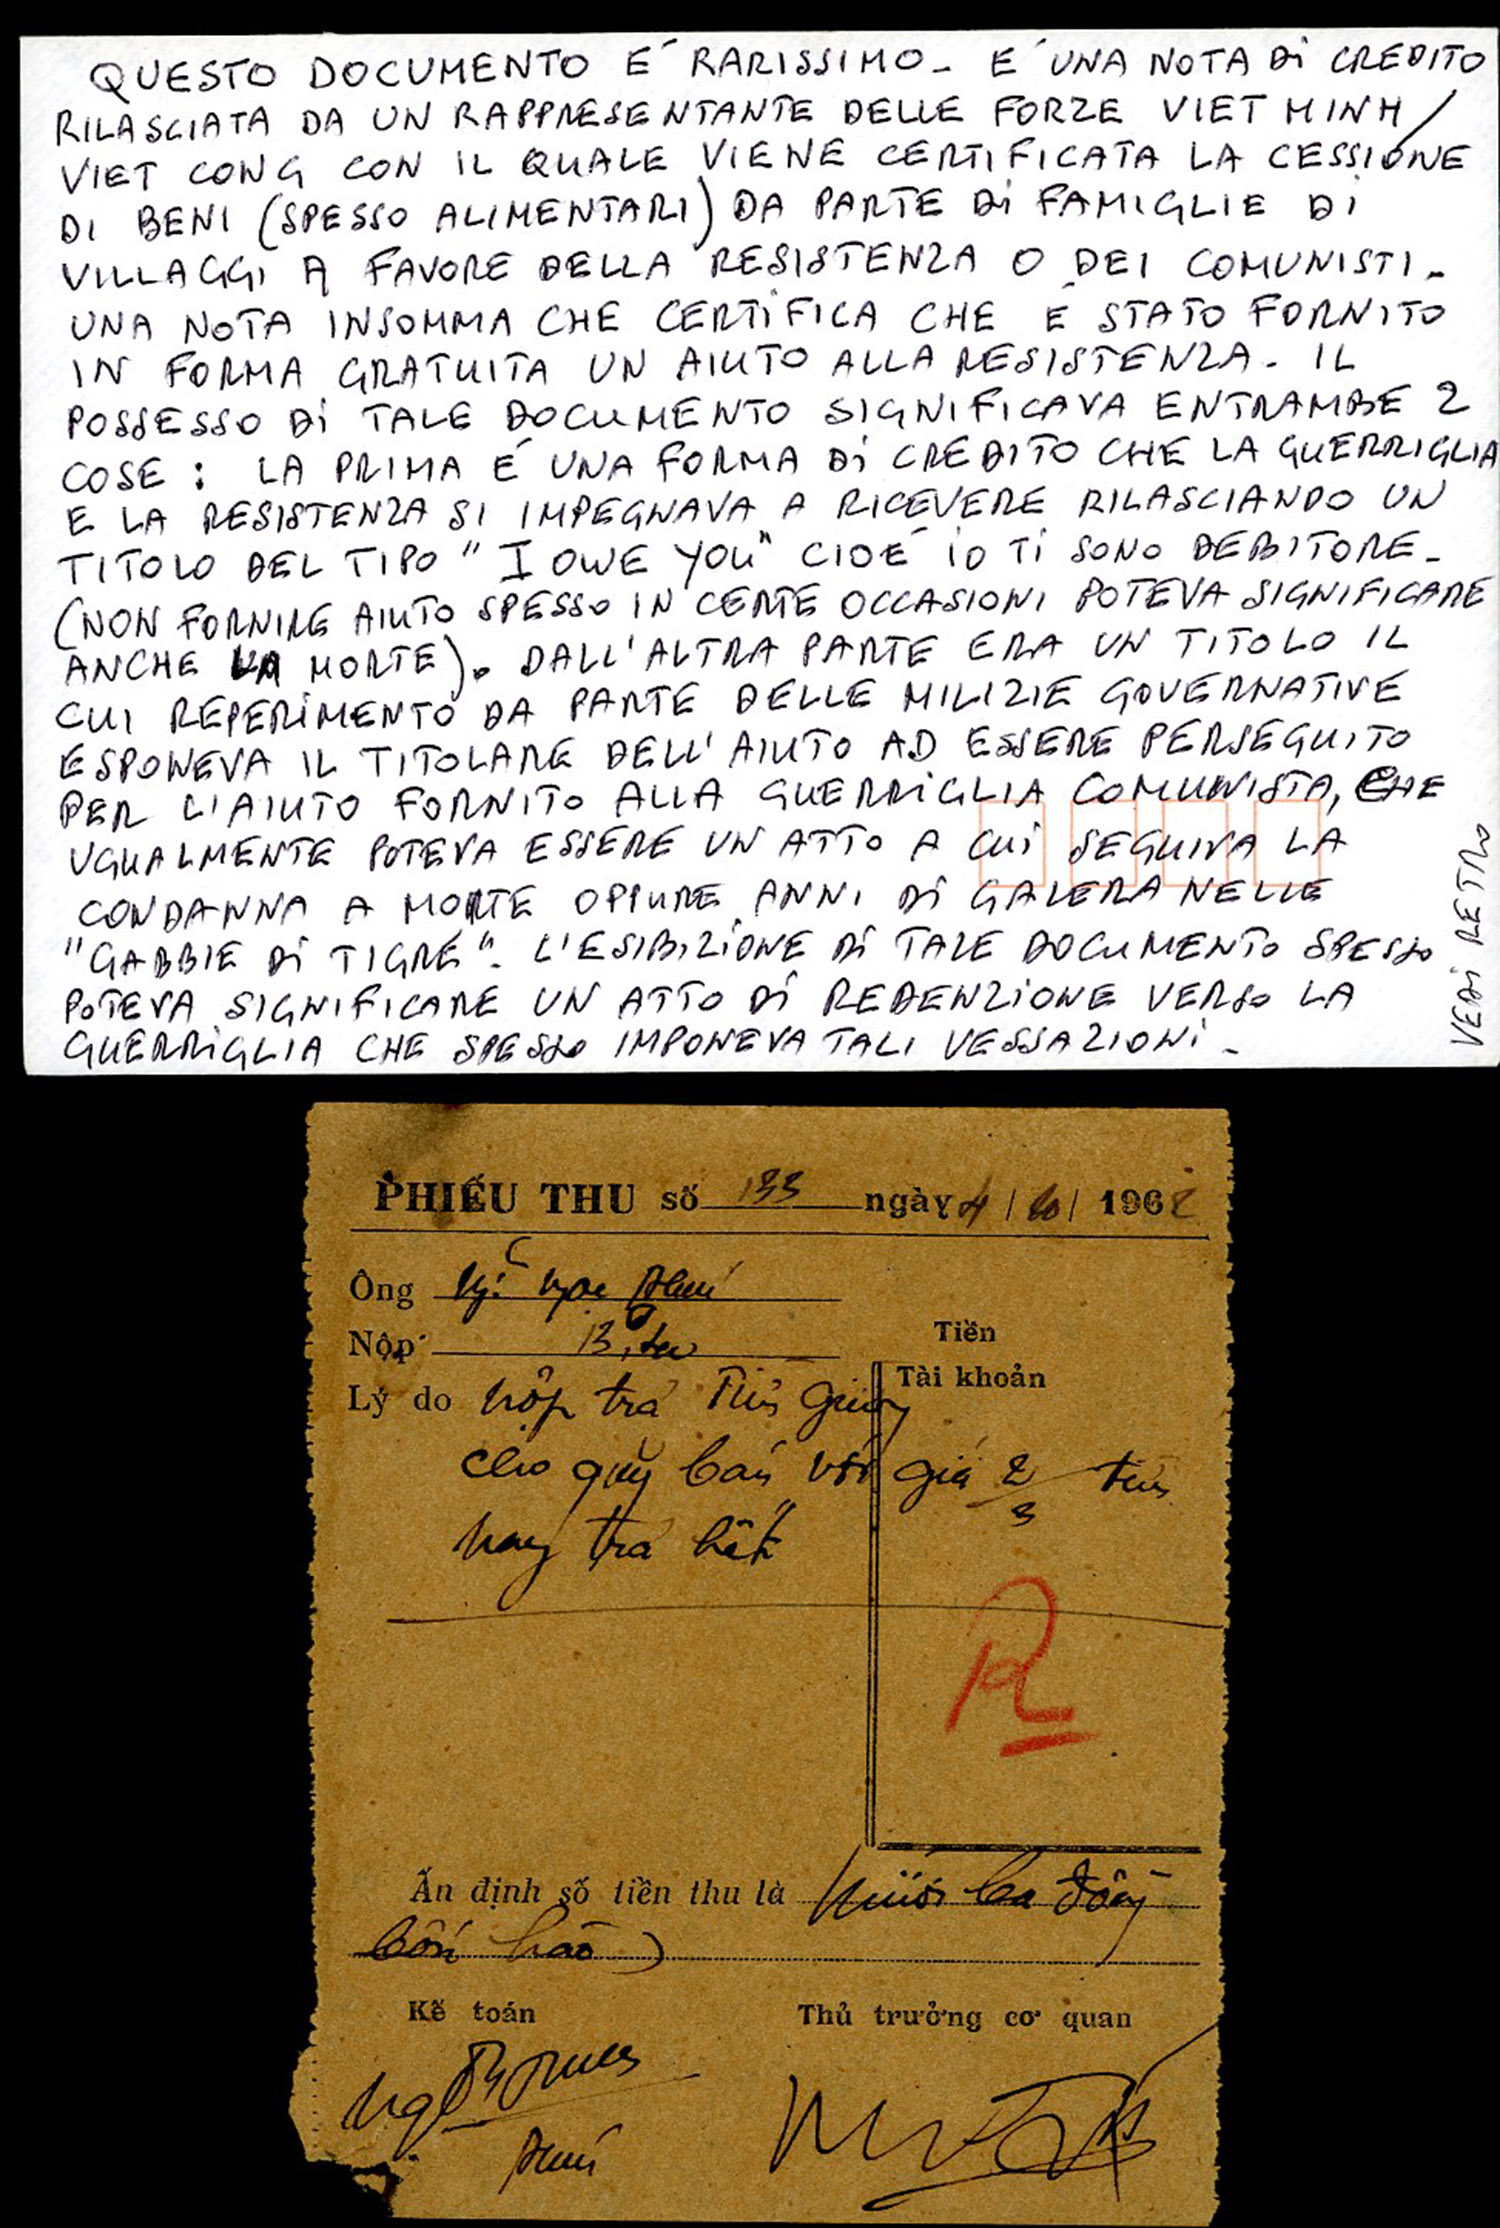 QUESTO DOCUMENTO E' RARISSIMO - E' UNA NOTA Di CREDITO
RILASCIATA DA UN RAPPRESENTANTE DELLE FORZE VIET MINH /
VIET CONG CON IL QUALE VIENE CERTIFICATA LA CESSIONE
DI BENI (SPESSO ALIMENTARI) DA PARTE Di FAMIGLIE Di
VILLAGGI A FAVORE DELLA RESISTENZA O DEI COMUNISTI -
UNA NOTA INSOMMA CHE CERTIFICA CHE E' STATO FORNITO
IN FORMA GRATUITA UN AIUTO ALLA RESISTENZA - IL
POSSESSO Di TALE DOCUMENTO SIGNIFICAVA ENTRAMBE 2
COSE : LA PRIMA E' UNA FORMA Di CREDITO CHE LA GUERRIGLIA
E LA RESISTENZA SI IMPEGNAVA A RICEVERE RILASCIANDO UN
TITOLO DEL TIPO "I OWE YOU" CIOE' iO Ti SONO DEBITORE -
(NON FORNIRE AIUTO SPESSO IN CERTE OCCASIONI POTEVA SIGNIFICARE
ANCHE LA MORTE). DALL'ALTRA PARTE ERA UN TITOLO IL
CUI REPERIMENTO DA PARTE DELLE MILIZIE GOVERNATIVE
ESPONEVA IL TITOLARE DELL'AIUTO AD ESSERE PERSEGUITO
PER L'AIUTO FORNITO ALLA GUERRIGLIA COMUNISTA, CHE
UGUALMENTE POTEVA ESSERE UN ATTO A CUI SEGUIVA LA
CONDANNA A MORTE OPPURE ANNI Di GALERA NELLE
"GABBIE Di TIGRE". L'ESIBIZIONE Di TALE DOCUMENTO SPESSO
POTEVA SIGNIFICARE UN ATTO Di REDENZIONE VERSO LA
GUERRIGLIA CHE SPESSO IMPONEVA TALI VESSAZIONi -
VEDI RETRO
PHIẾU THU số 133 ngày 4 / 10 / 1962
Ông Ngọc
Nộp
Tiền
Tài khoản
Lý do nộp trả tiền
cho quỹ bán với giá 2/3 tiền
nay trả hết
Ấn định số tiền thu là Mười ba đồng
bốn hào
Kế toán
Thủ trưởng cơ quan